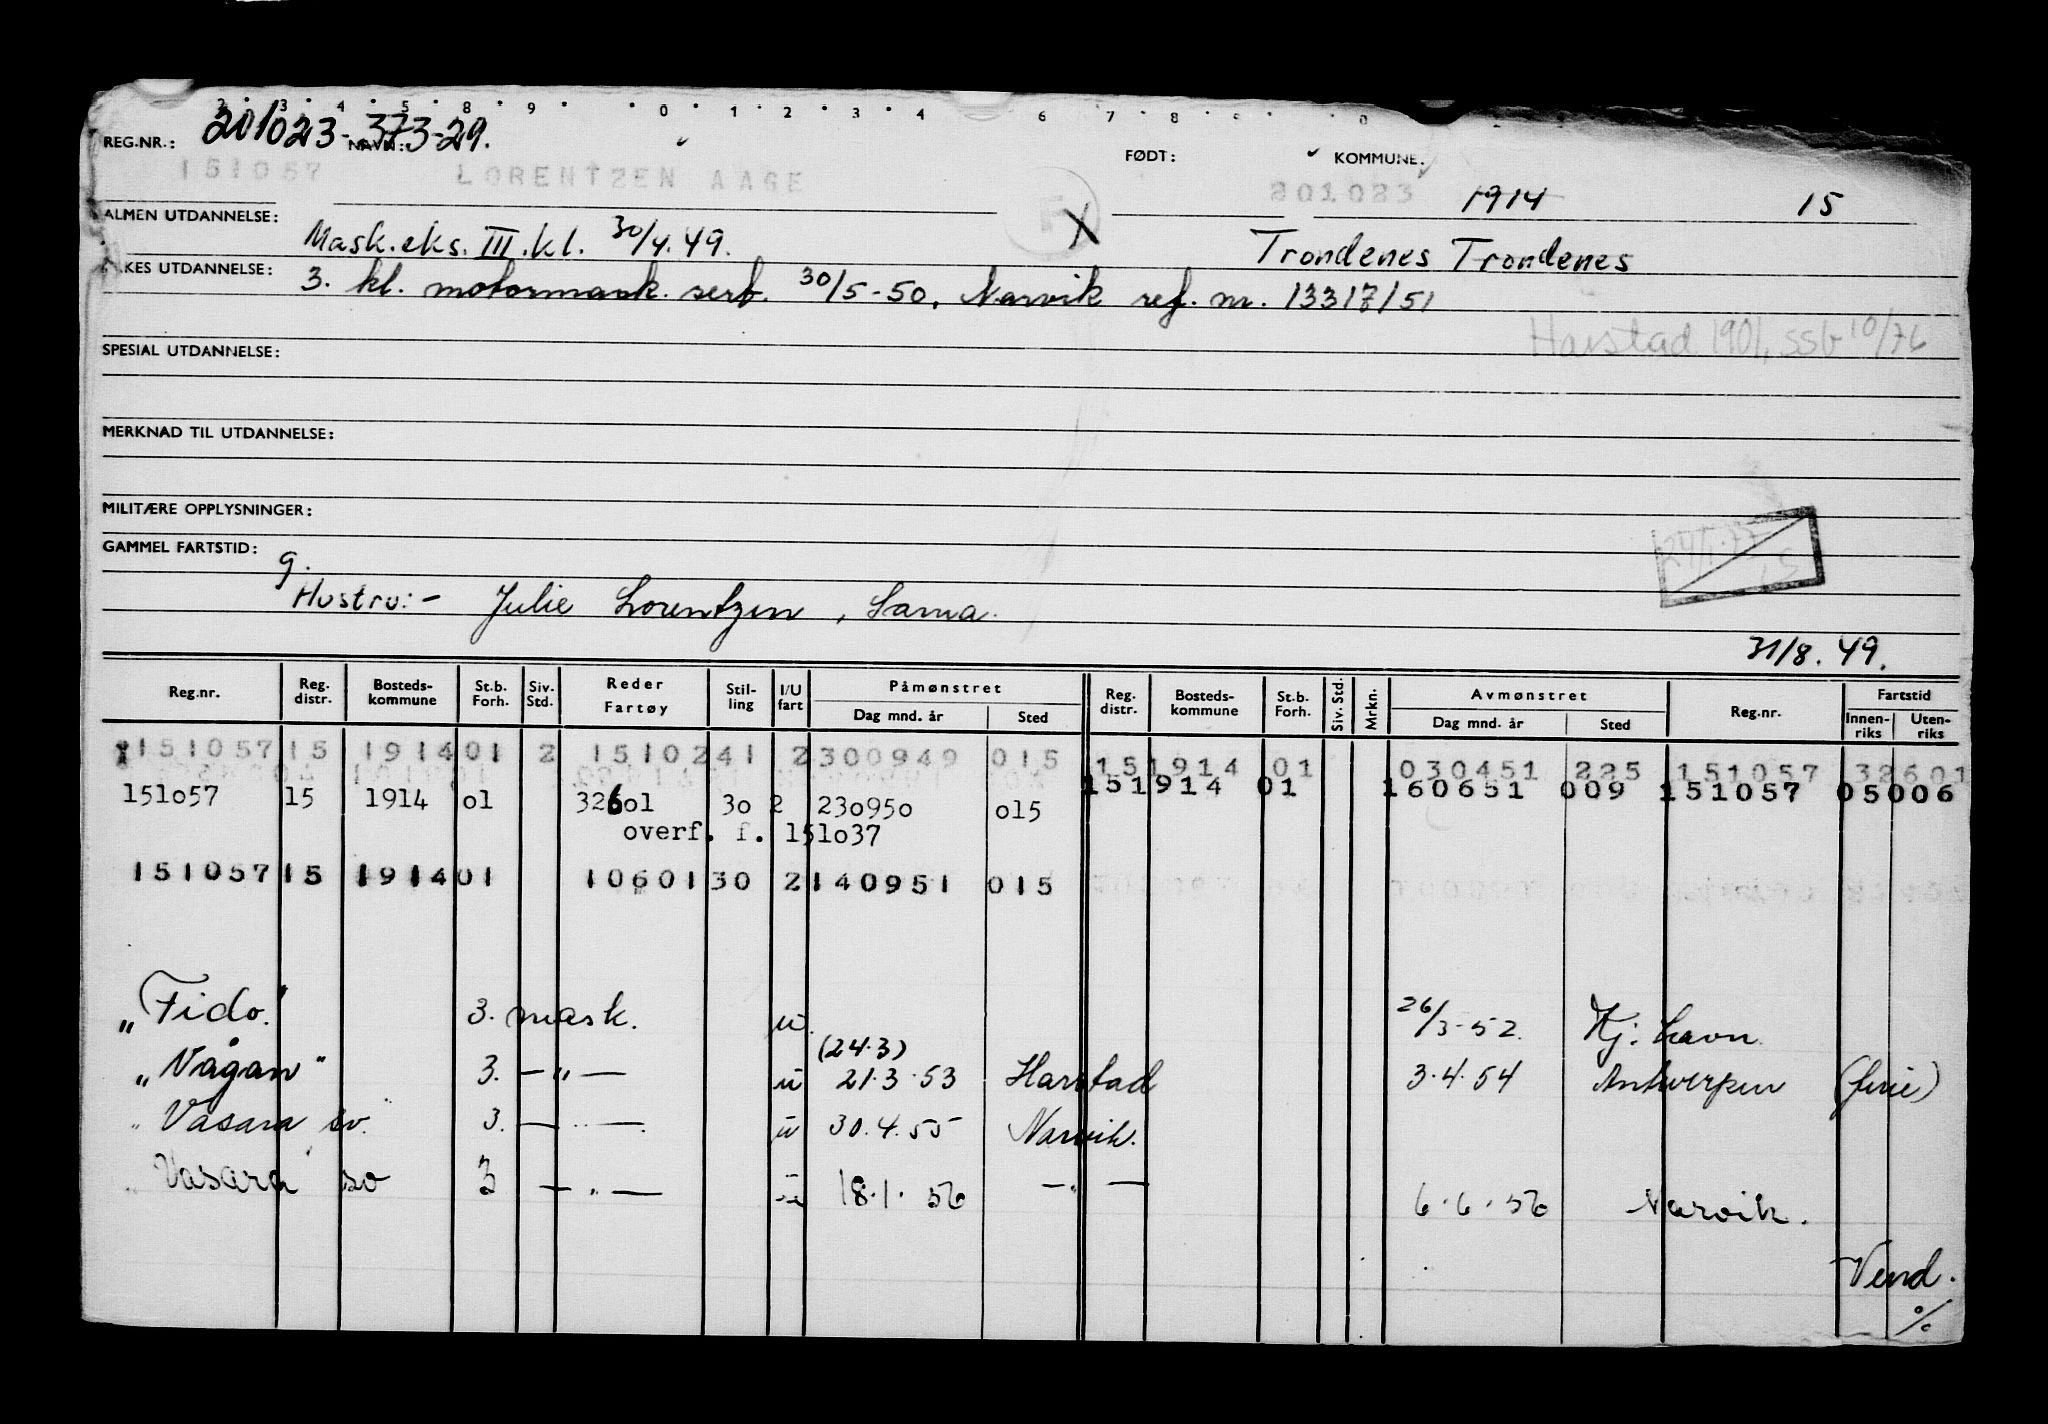 2 3 4 5 8 9 0 1 2 3 4 6 7 8 9 0
REG.NR.: 201023-373-29. NAVN: FØDT: KOMMUNE:
151057 LORENTZEN AAGE 201023 1914 15
ALMEN UTDANNELSE: Mask.eks. III.kl. 30/4.49. X Trondenes Trondenes
UTDANNELSE: 3. kl. motormask. serb. 30/5-50, Narvik ref. nr. 13317/51
Harstad 1901, SSb 10/76
SPESIAL UTDANNELSE:
MERKNAD TIL UTDANNELSE:
MILITÆRE OPPLYSNINGER:
GAMMEL FARTSTID: g.
24/1.77
Hustru:- Julie Lorentzen, Sama.
31/8.49.
Reg.nr. Reg. distr. Bosteds-kommune St.b. Forh. Siv. Std. Reder Fartøy Stil-ling I/U fart Påmønstret Dag mnd. år Sted Reg. distr. Bosteds-kommune St.b. Forh. Siv. Std. Mrkn. Avmønstret Dag mnd. år Sted Reg.nr. Fartstid Innen-riks Uten-riks
151057 15 1914 01 2 1510241 2 300949 015 15 1914 01 030451 225 151057 32601
151057 15 1914 01 32601 30 2 230950 015 15 1914 01 160651 009 151057 05006
overf. f. 151037
151057 15 1914 01 10601 30 2 140951 015
"Fido" 3. mask. u. 26/3-52. Kj: havn
(24.3)
"Någan" 3. -"- u 21.3.53 Harstad 3.4.54 Antwerpen (ferie)
"Vasara" sv. 3. -"- u 30.4.55 Narvik.
"Vasara" sv 3 -"- u 18.1.56 -"- 6.6.56 Narvik.
Vend.
%